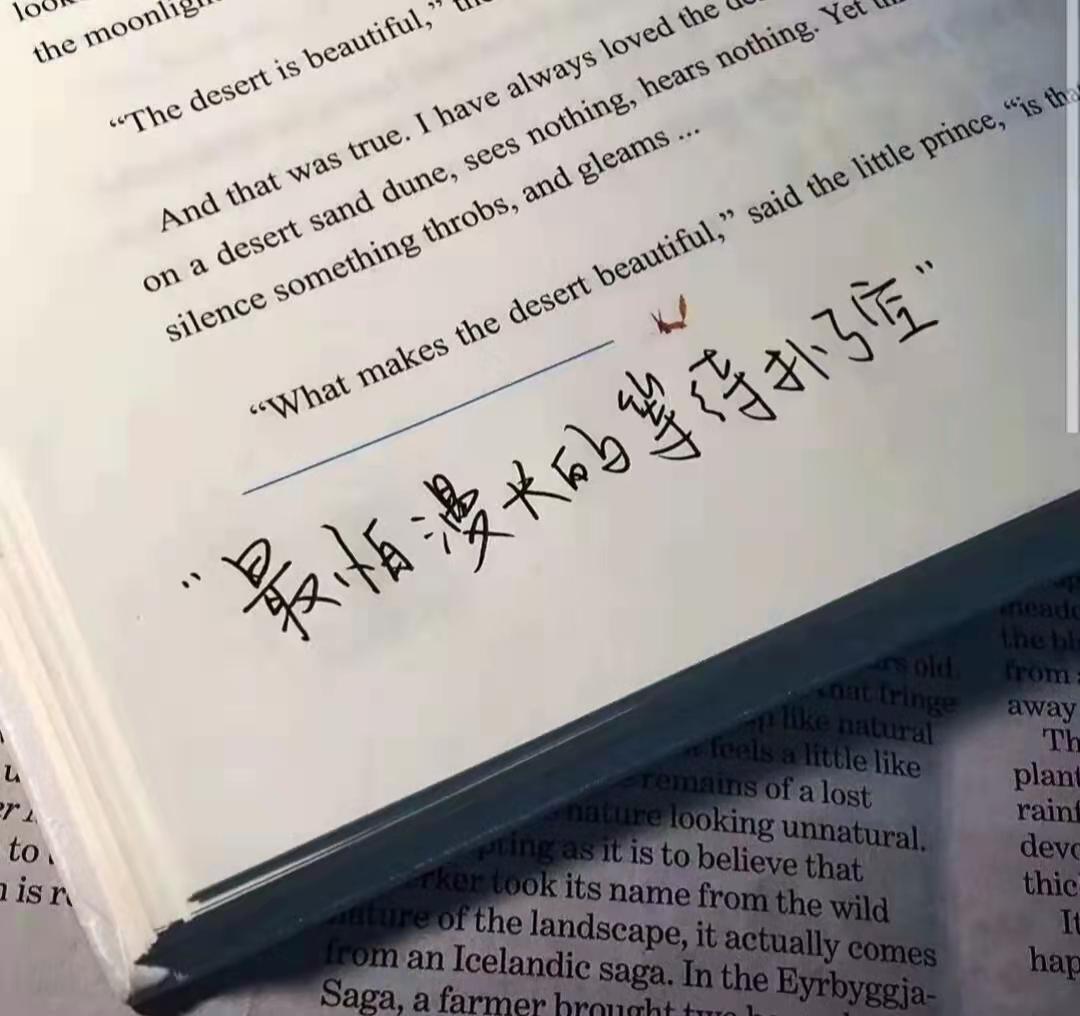 the moonlig
“The desert is beautiful,”
And that was true. I have always loved the
on a desert sand dune, sees nothing, hears nothing. Yet
silence something throbs, and gleams ...
“What makes the desert beautiful,” said the little prince, “is tha
“最怕漫长的等待扑了空”
to
is
old.
that fringe
like natural
feels a little like
remains of a lost
nature looking unnatural.
as it is to believe that
took its name from the wild
nature of the landscape, it actually comes
from an Icelandic saga. In the Eyrbyggja-
Saga, a farmer brought two
from
away
Th
plant
rainf
devo
thic
It
hap